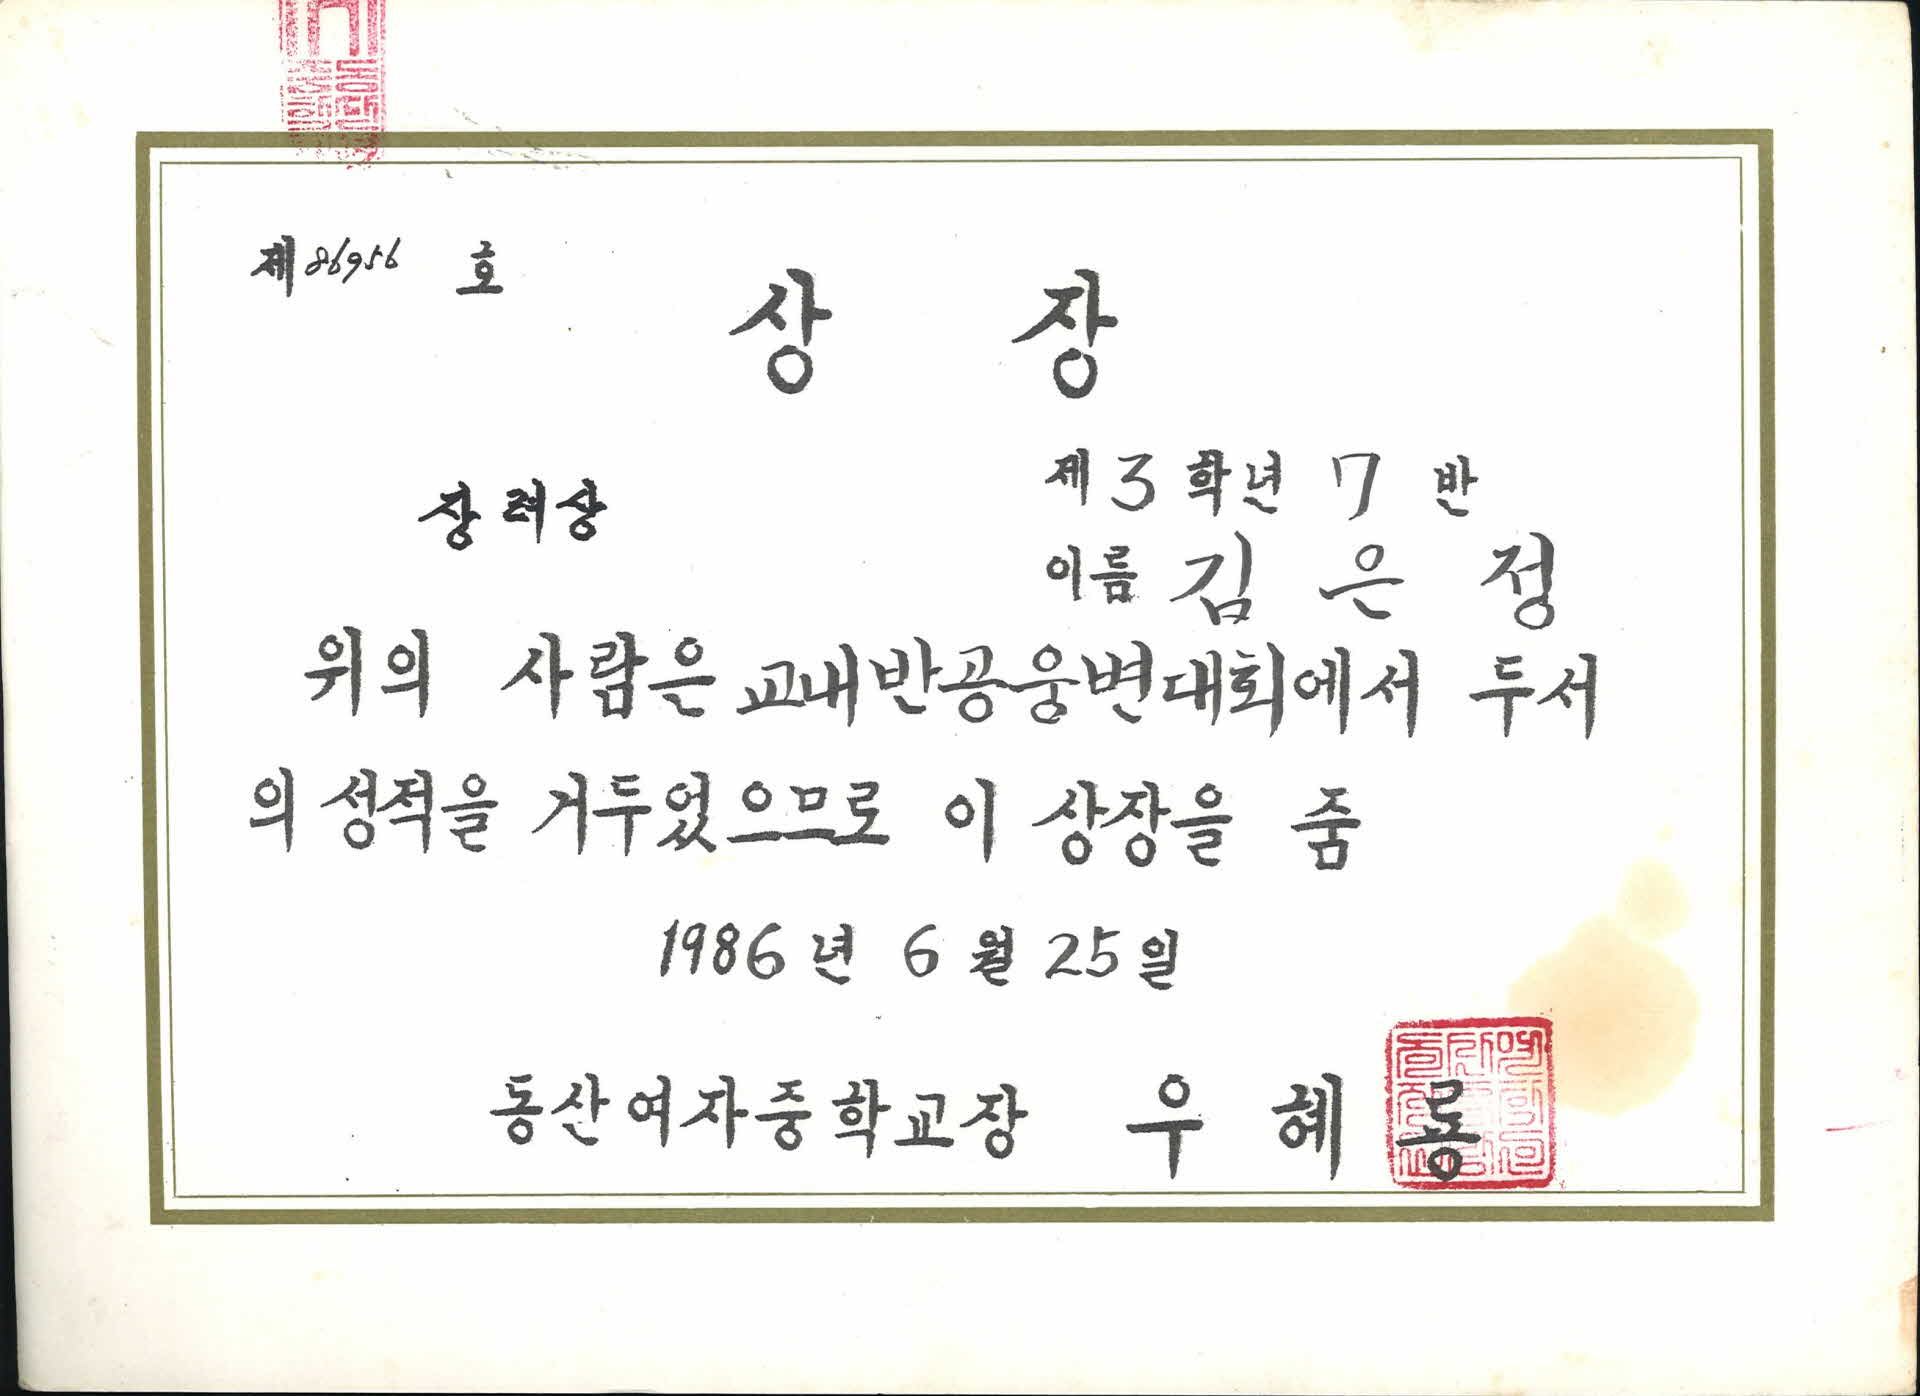 제 86956 호
상 장
장려상
제 3 학년 7 반
이름 김 은 정
위의 사람은 교내반공웅변대회에서 두서
의 성적을 거두었으므로 이 상장을 줌
1986 년 6 월 25 일
동산여자중학교장 우 혜 룡